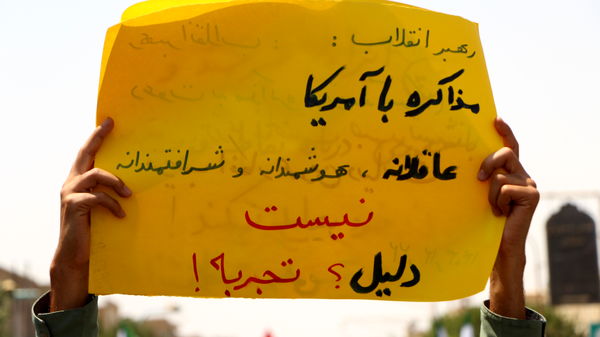 رهبر انقلاب :
مذاکره با آمریکا
عاقلانه ، هوشمندانه و شرافتمندانه
نیست
دلیل ؟ تجربه !